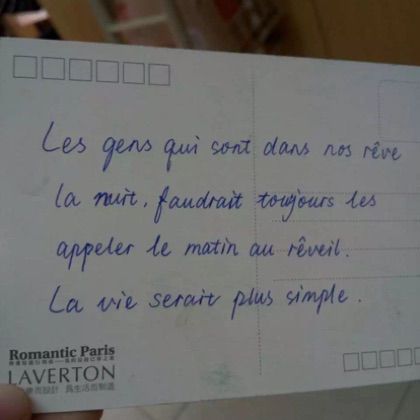 Les gens qui sont dans nos rêve
la nuit, faudrait toujours les
appeler le matin au réveil.
La vie serait plus simple.
Romantic Paris
LAVERTON
為生活而制造